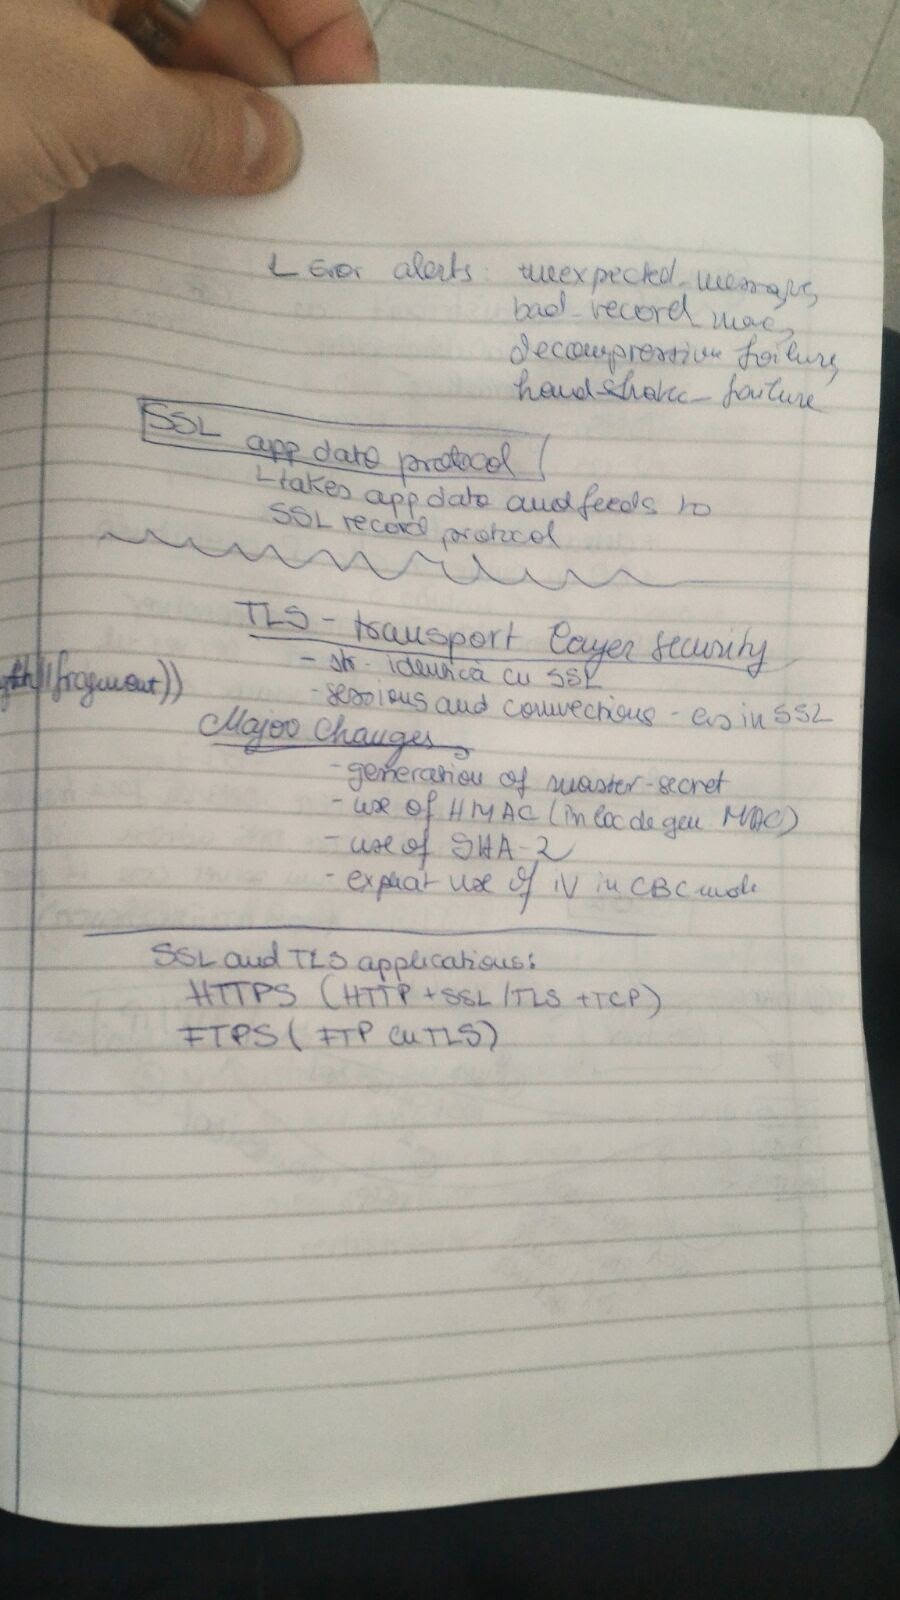 Error alerts: unexpected_message,
bad_record_mac,
decompression failure,
handshake_failure
SSL app data protocol
takes app data and feeds to
SSL record protocol
TLS - transport layer security
- str. identica cu SSL
fragment))
- sessions and connections - as in SSL
Major Changes
- generation of master-secret
- use of HMAC (in loc de gen MAC)
- use of SHA-2
- explicit use of IV in CBC mode
SSL and TLS applications:
HTTPS (HTTP + SSL/TLS + TCP)
FTPS (FTP cu TLS)